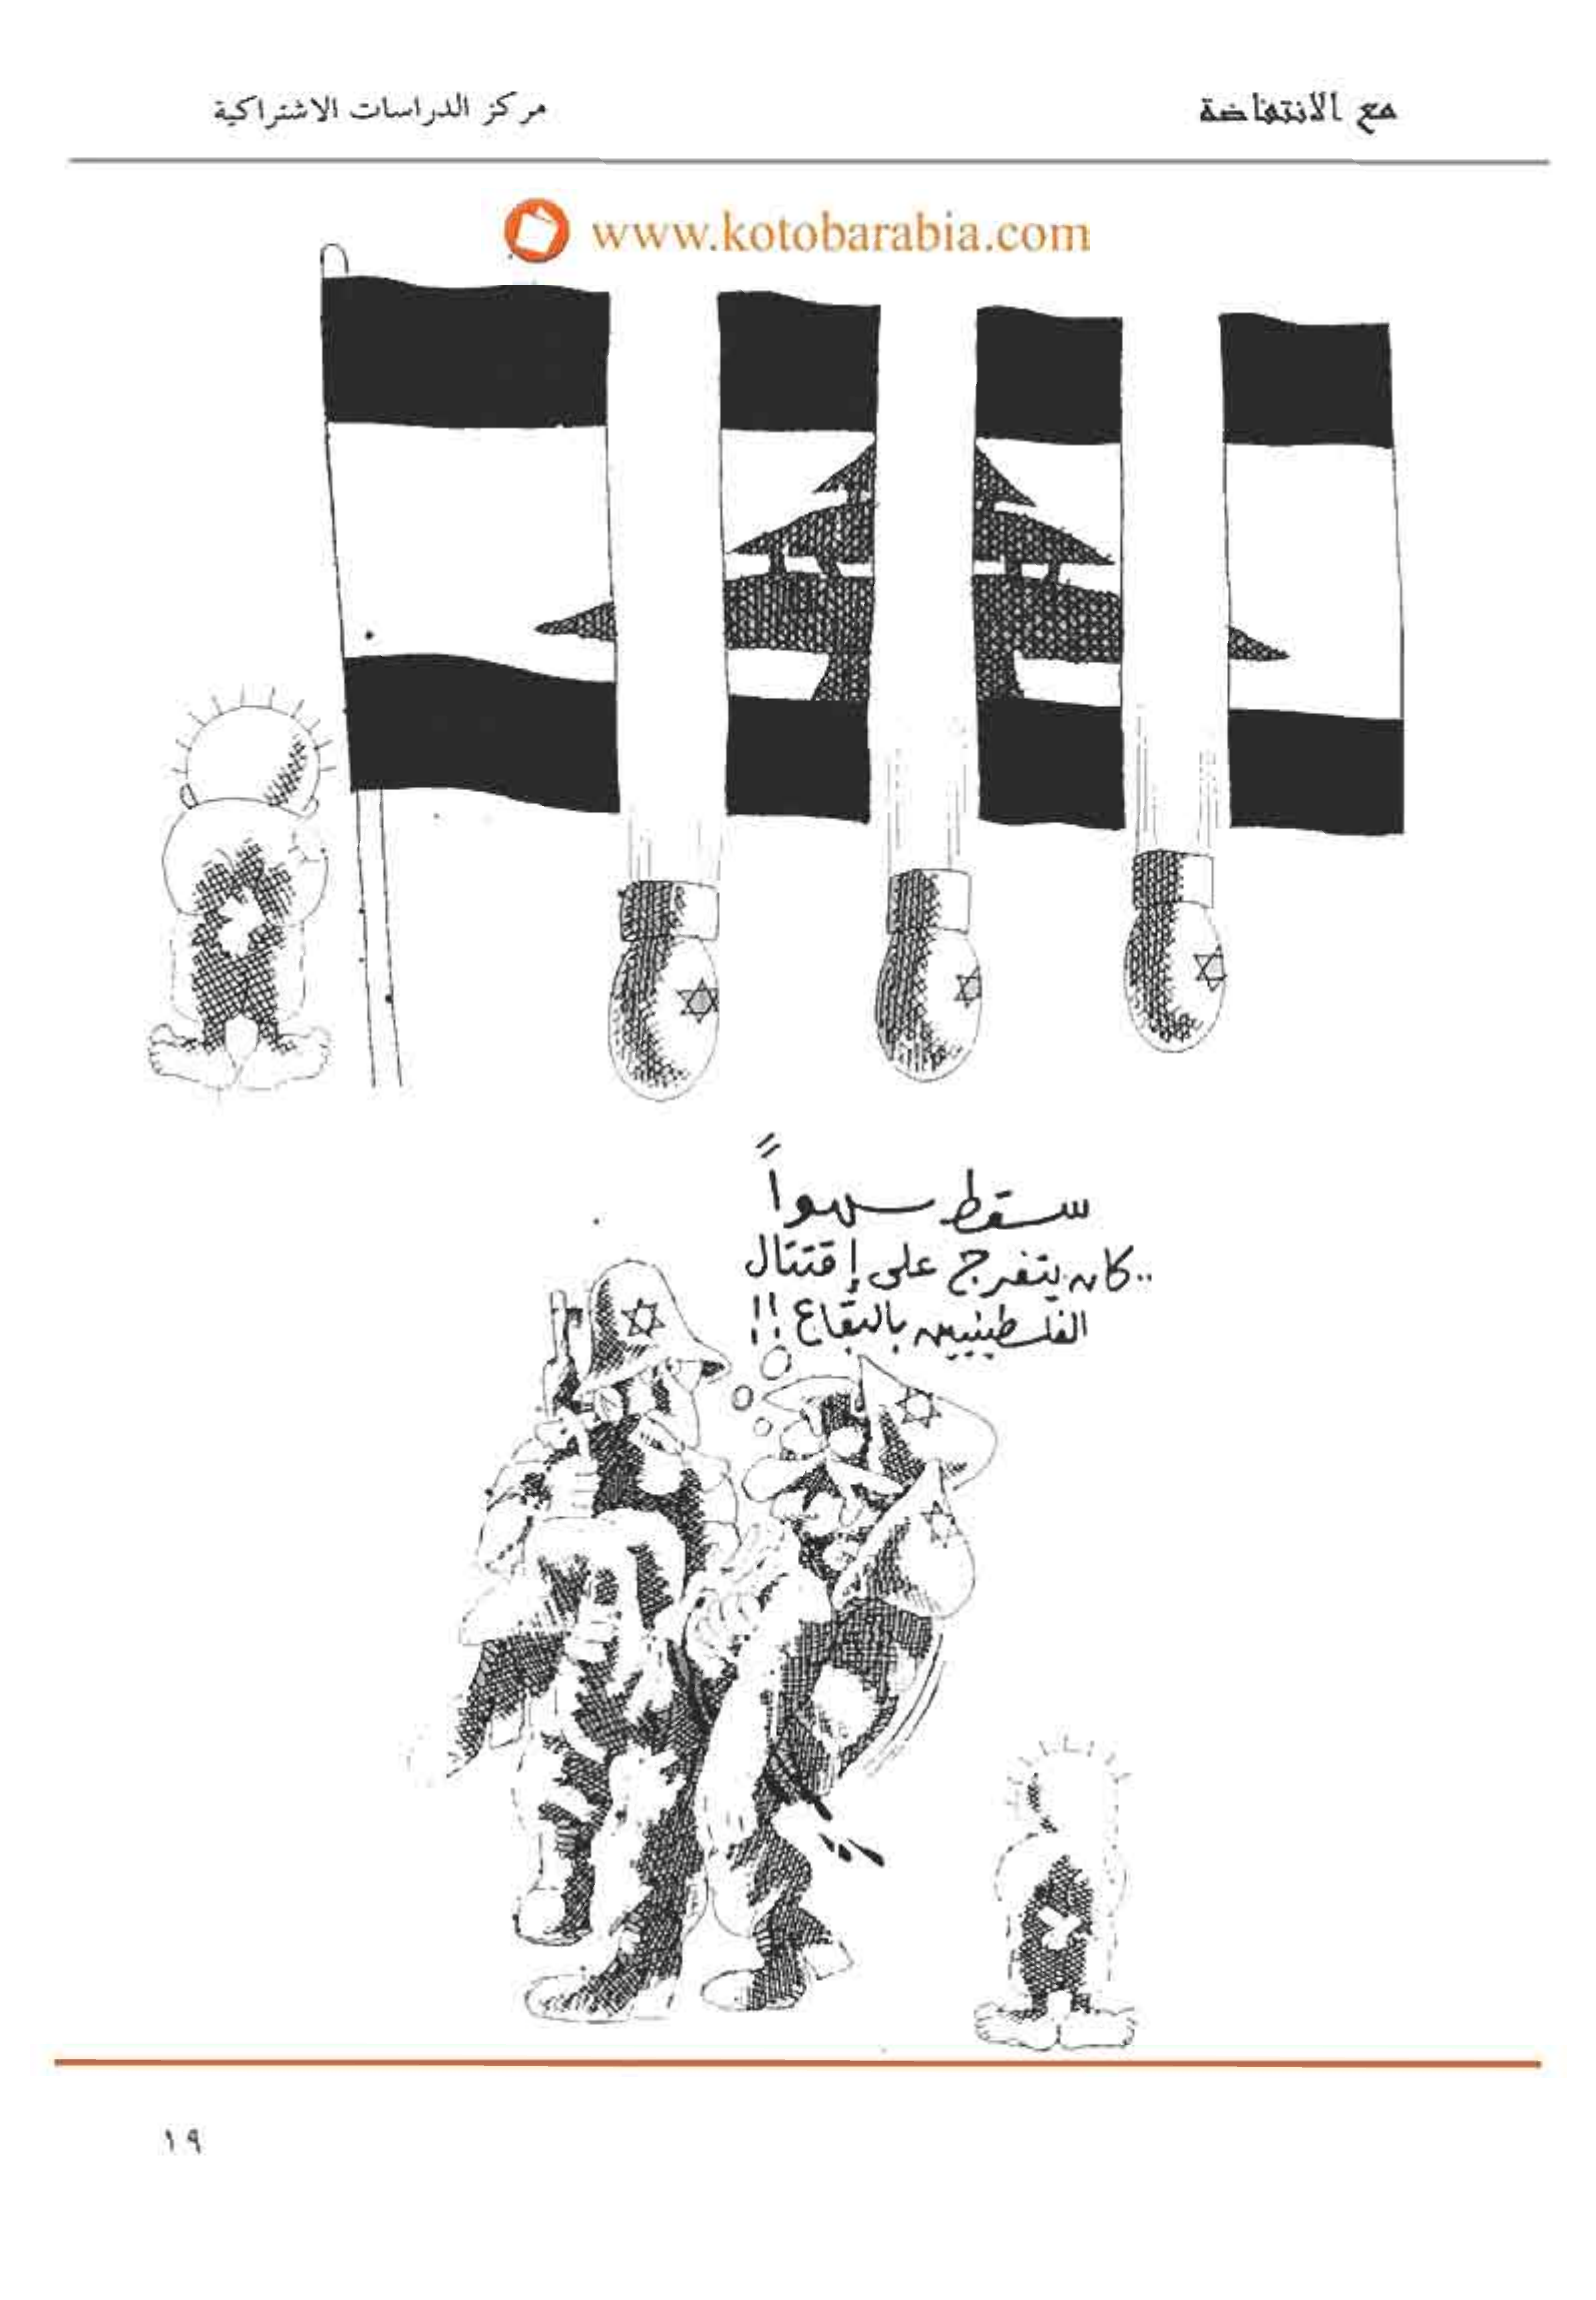 مع الانتفاضة
مركز الدراسات الاشتراكية
www.kotobarabia.com
سقط سهواً
..كان يتفرج على إقتتال
الفلسطينيين بالبقاع !!
١٩